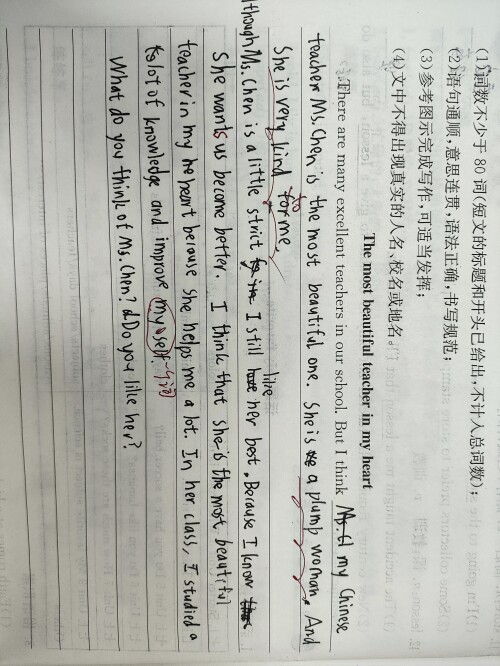 (1)词数不少于 80 词(短文的标题和开头已给出,不计入总词数);
(2)语句通顺,意思连贯,语法正确,书写规范;
(3)参考图示完成写作,可适当发挥;
(4)文中不得出现真实的人名、校名或地名。
The most beautiful teacher in my heart
There are many excellent teachers in our school. But I think my Chinese
teacher Ms. Chen is the most beautiful one. She is a plump woman. And
She is very kind to me.
Although Ms. Chen is a little strict I still like her best. Because I know
She wants us become better. I think that she is the most beautiful
teacher in my heart because she helps me a lot. In her class, I studied a
lot of knowledge and improve myself.
What do you think of Ms. Chen? Do you like her?